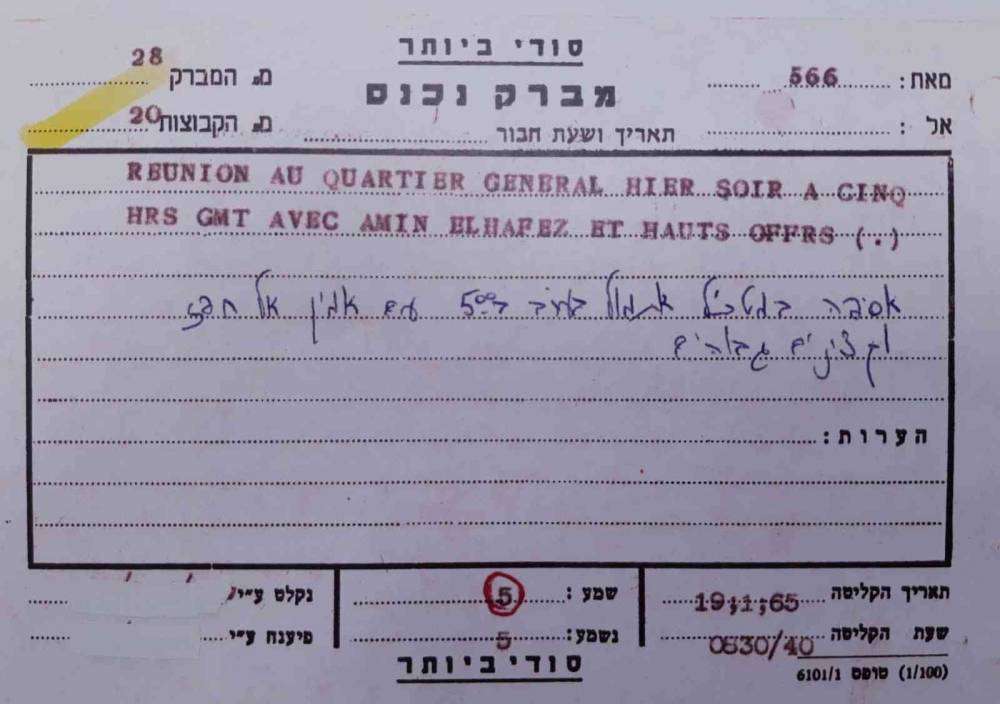 סודי ביותר
מאת: 566 מברק נכנס מ. המברק 28
אל : תאריך ושעת חבור מ. הקבוצות 20
REUNION AU QUARTIER GENERAL HIER SOIR A CINQ
HRS GMT AVEC AMIN ELHAFEZ ET HAUTS OFFRS (.)
אסיפה במטכ"ל אתמול בערב ב־5⁰⁰ עם אמין אל חפז
וקצינים גבוהים
הערות:
תאריך הקליטה 19;1;65 שמע: 5 נקלט ע"י
שעת הקליטה 0830/40 נשמע: 5 פיענח ע"י
סודי ביותר
6101/1 טופס (1/100)